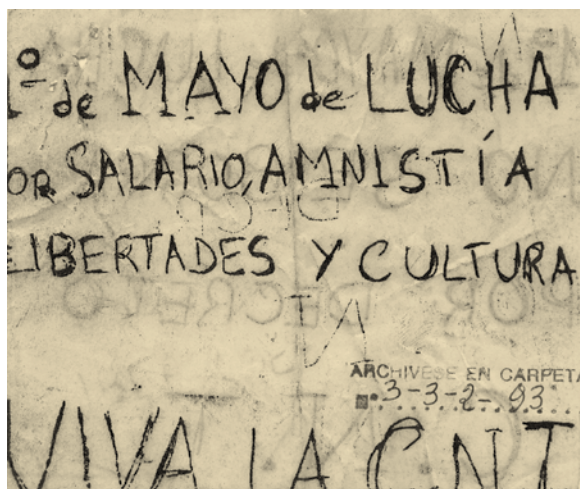 1º de MAYO de LUCHA
OR SALARIO, AMNISTÍA
LIBERTADES Y CULTURA
ARCHIVESE EN CARPETA
3-3-2-93
VIVA LA C.N.T